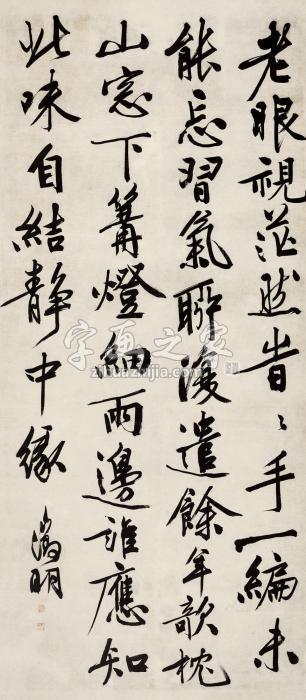 老眼視茫然旹〻手一編未
能忘習氣聊復遣餘年欹枕
山窓下篝燈細雨邊誰應知
此味自結靜中緣
徵明
字画之家
zihuazhijia.com